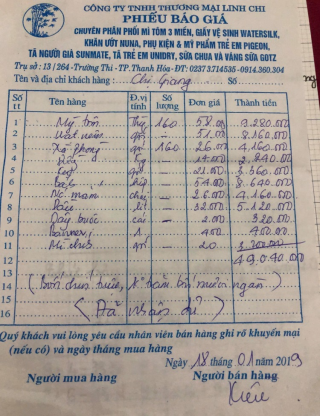 CÔNG TY TNHH THƯƠNG MẠI LINH CHI
PHIẾU BÁO GIÁ
CHUYÊN PHÂN PHỐI MÌ TÔM 3 MIỀN, GIẤY VỆ SINH WATERSILK,
KHĂN ƯỚT NUNA, PHỤ KIỆN & MỸ PHẨM TRẺ EM PIGEON,
TÃ NGƯỜI GIÀ SUNMATE, TÃ TRẺ EM UNIDRY, SỮA CHUA VÀ VÁNG SỮA GOTZ
Trụ sở: 13/264 - Trường Thi - TP. Thanh Hóa - ĐT: 0237.3714535 - 0914.360.304
Tên và địa chỉ khách hàng: Chị Giang Số
Số TT Tên hàng Đ.vị tính Số lượng Đơn giá Thành tiền
1 Mỳ tôm 160 58.000 9.280.000
2 51.000 8.160.000
3 Xà phòng 160 26.000 4.160.000
4 14.000 2.240.000
5 21.000 3.360.000
6 54.000 8.640.000
7 Nc mắm 26.000 4.160.000
8 32.000 5.120.000
9 Dây buộc cái 2.000 320.000
10 1 400 400.000
11 20
12 49.040.000
13
14
15 (Đã nhận đủ)
16
Quý khách vui lòng yêu cầu nhân viên bán hàng ghi rõ khuyến mại
(nếu có) và ngày tháng mua hàng
Ngày 18 tháng 01 năm 2019
Người mua hàng Người bán hàng
Kiều